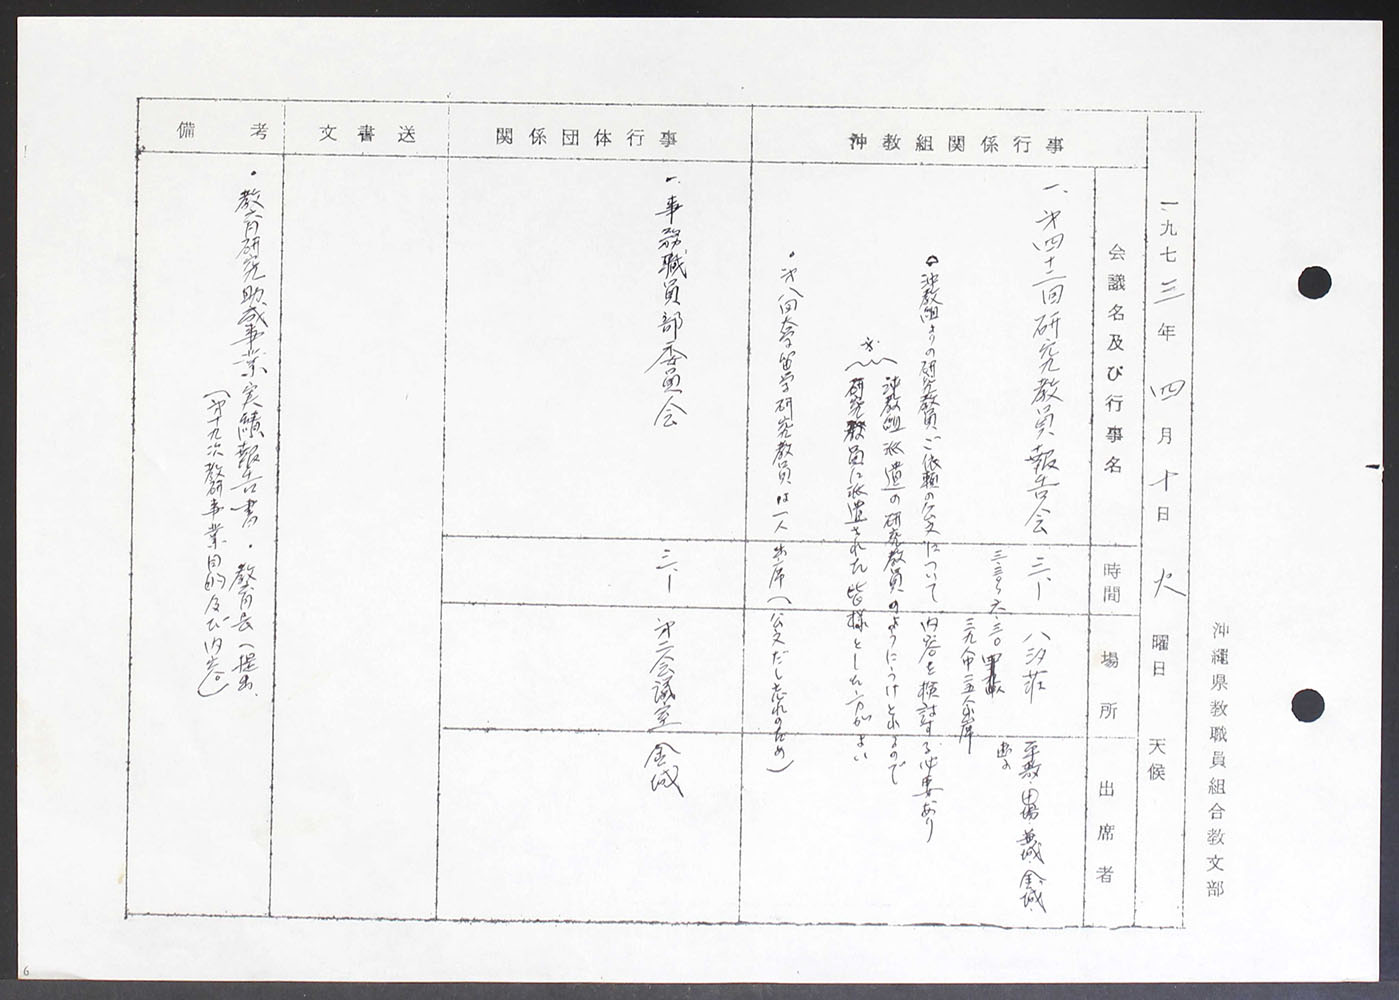 沖縄県教職員組合教文部
一九七三年 四月 十日 火曜日 天候
沖教組関係行事
会議名及び行事名
時間
場所
出席者
一、第四十二回研究教員報告会 三、一 八汐荘 平敷・田場 兼城、金城
三、三〇〜六、三〇
三九人中二五人出席
。沖教組よりの研究教員ご依頼の公文について内容を検討する必要あり
沖教組派遣の研究教員のようにうけとれるので
研究教員に派遣された皆様としたい方がよい
。第八回大学留学研究教員は一人出席(公文だし忘れのため)
関係団体行事
一、事務職員部委員会 三、一 第二会議室 金城
文書送
備考
・教育研究助成事業実績報告書・教育長へ提出、
(第十九次教研事業目的及び内容)
6